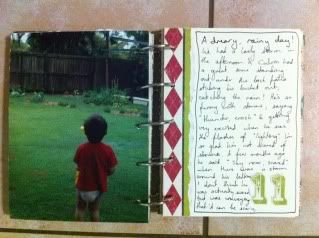 A dreary, rainy day!
We had a lovely storm in
the afternoon & Callum had
a great time standing
out under the back patio
sticking his bucket out,
catching the rain! He's so
funny with storms, saying
"thunder, crash" & getting
very excited when he saw
the flashes of "lightning". I'm
so glad he's not scared of
storms. A few months ago he
said "Sky now, scared"
when there was a storm
around his bedtime.
I don't think he
was actually scared
but was conveying
that it can be scary.
11